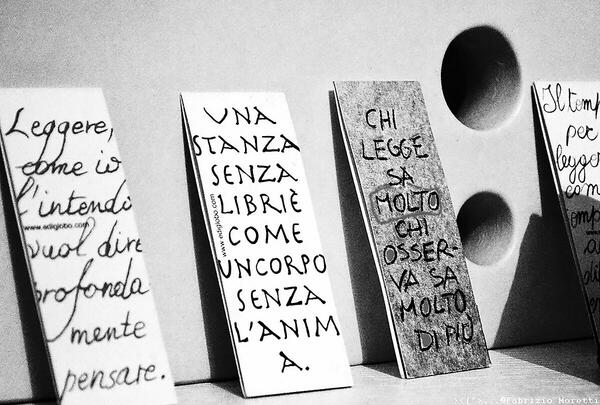 Leggere,
come io
l'intendo
www.ediglobo.com
vuol dire
profonda
mente
pensare.
UNA
STANZA
SENZA
LIBRIÈ
COME
UNCORPO
SENZA
L'ANIM
A.
www.ediglobo.com
CHI
LEGGE
SA
MOLTO
CHI
OSSER-
VA SA
MOLTO
DI PIÙ
Il temp
per
legger
com
a
@Fabrizio Moretti